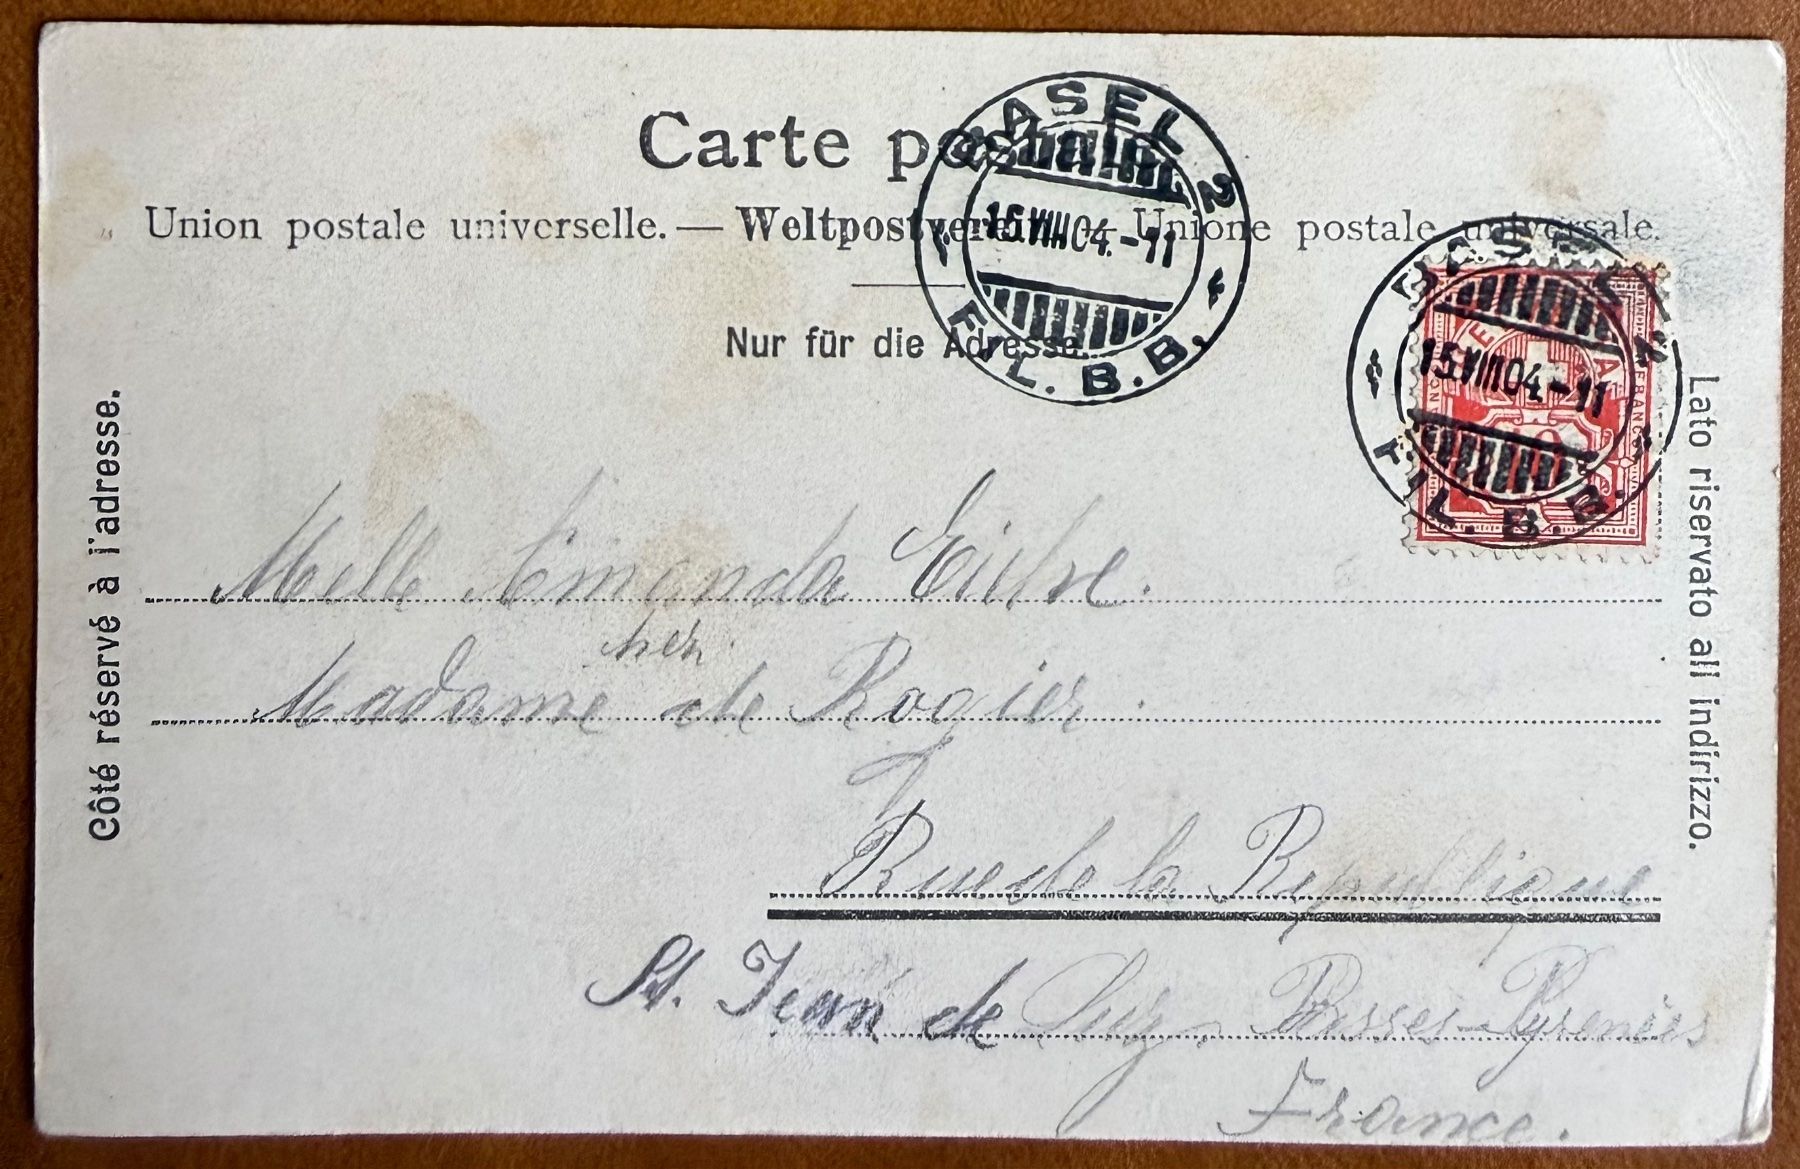 Carte postale
Union postale universelle. — Weltpostverein — Unione postale universale.
Nur für die Adresse.
Côté réservé à l'adresse.
Lato riservato all indirizzo.
BASEL 2
15 VIII 04.-11
FIL. B.B.
BASEL 2
15 VIII 04-11
FIL. B.B.
FRANCO
10
Melle Amanda
chez
Madame de Rogier
Rue de la République
St. Jean de Luz, Basses-Pyrénées
France.